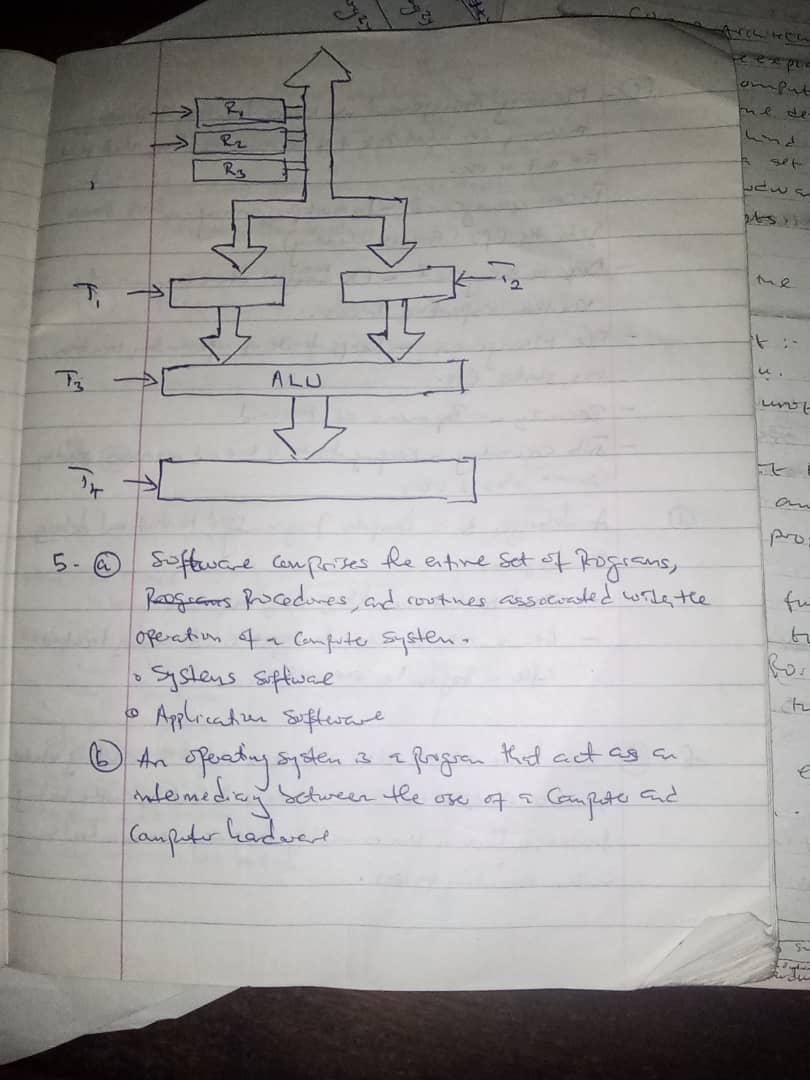 R1
R2
R3
T1
T2
T3
ALU
T4
5. (a) Software comprises the entire set of Programs,
Programs Procedures, and routines associated with the
operation of a Compute system.
• Systems Software
• Application Software
(b) An operating system is a program that act as an
intermediary between the use of a Compute and
Computer hadware
Architec
comput
set
me
unot
an
pro
fu